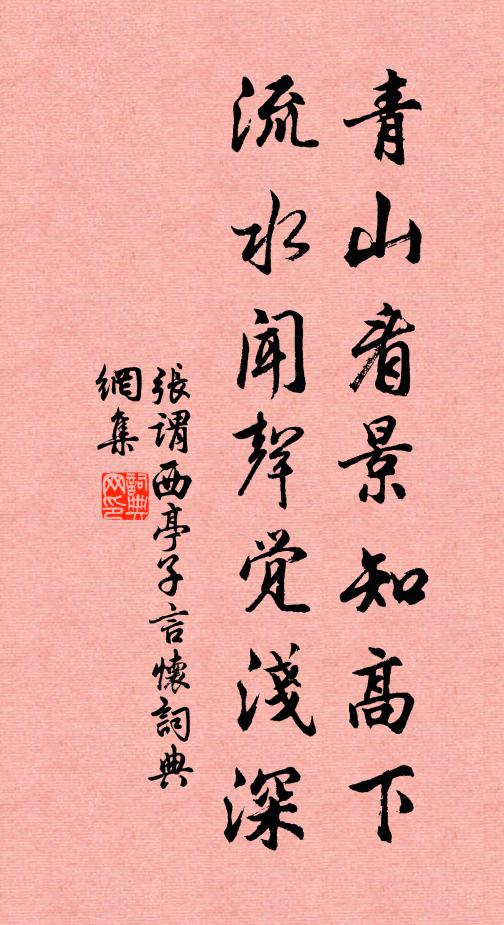 青山看景知高下
流水闻聲觉淺深
張謂西亭子言懷詞典
網集
詞典
网印